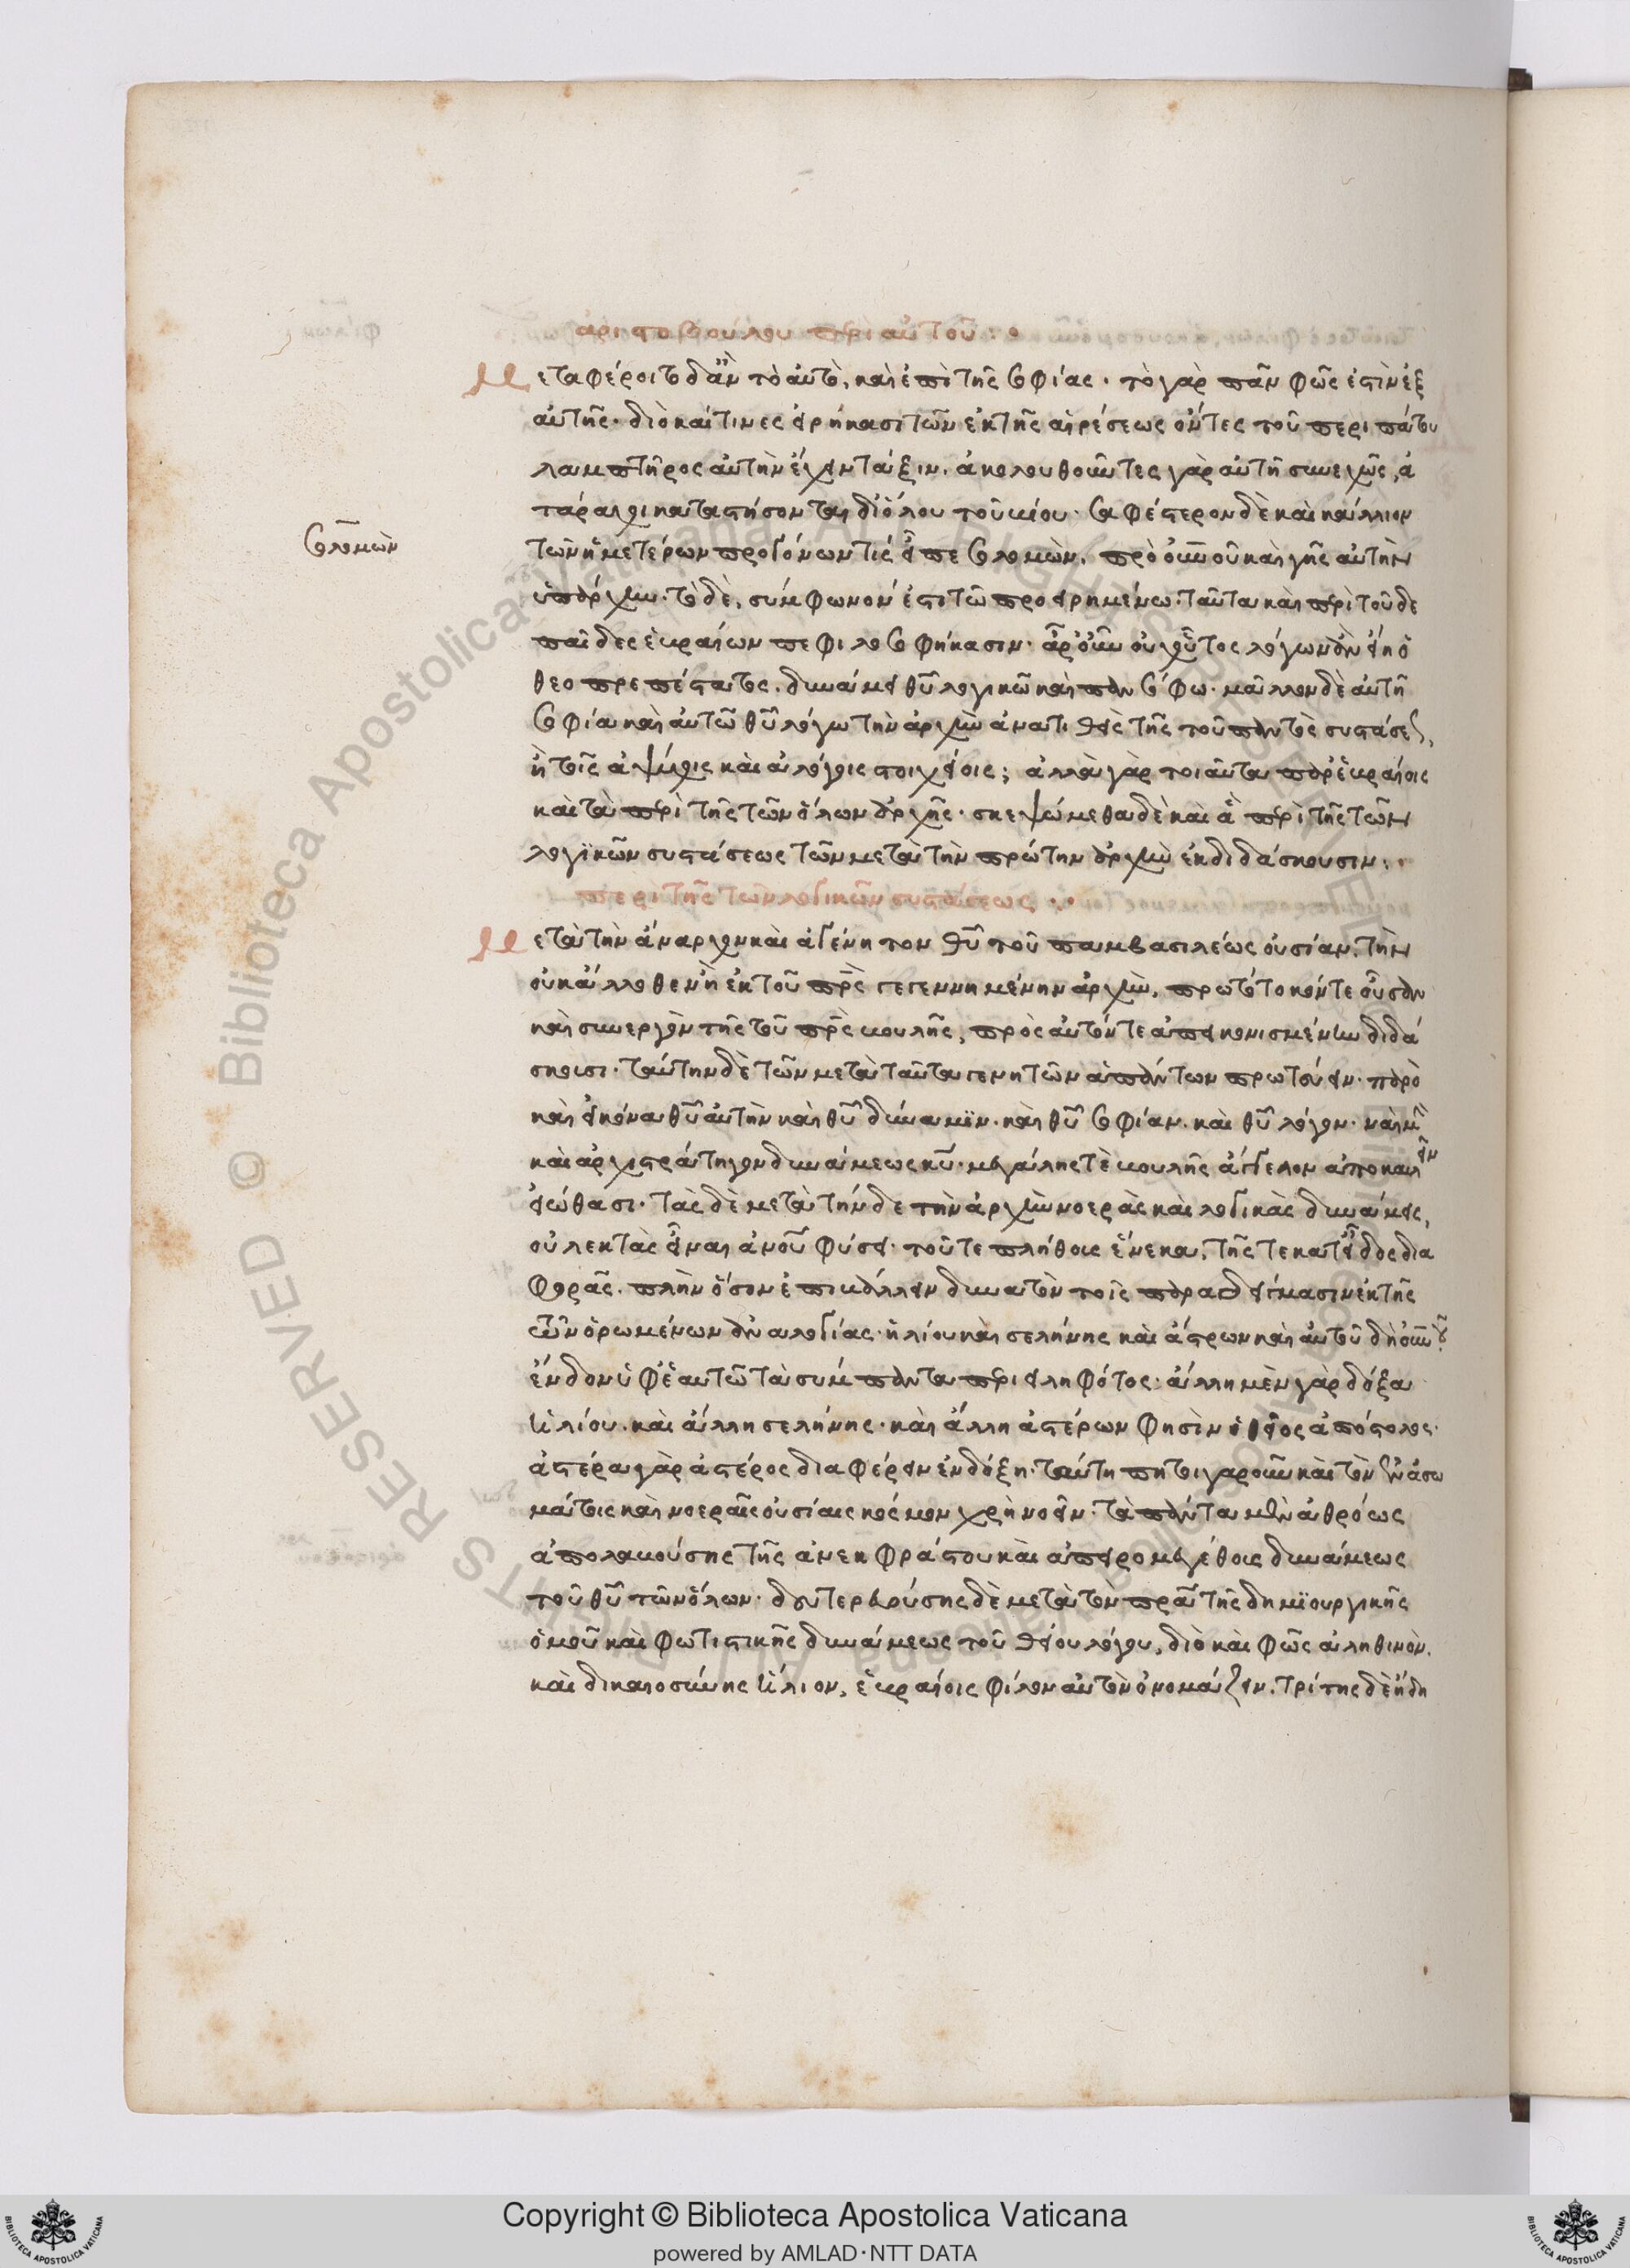 ἀριστοβούλου περὶ αὐτοῦ :·
Μεταφέροιτο δ' ἂν τὸ αὐτὸ, καὶ ἐπὶ τῆς σοφίας· τὸ γὰρ πᾶν φῶς ἐστὶν ἐξ
αὐτῆς· διὸ καί τινες εἰρήκασι τῶν ἐκ τῆς αἱρέσεως ὄντες τοῦ περιπάτου
λαμπτῆρος αὐτὴν ἔχειν τάξιν. ἀκολουθοῦντες γὰρ αὐτῇ συνεχῶς, ἀ
τάραχοι καταστήσονται δι' ὅλου τοῦ βίου· σαφέστερον δὲ καὶ κάλλιον
σολομὼν
τῶν ἡμετέρων προγόνων τίς εἶπε σολομὼν, πρὸ οὐνοῦ καὶ γῆς αὐτὴν
ὑπάρχειν. τὸ δὲ, σύμφωνόν ἐστι τῷ προειρημένω. ταῦτα καὶ περὶ τοῦδε
παῖδες ἑβραίων πεφιλοσοφήκασιν. ἆρ' οὖν οὐχ οὗτος λόγων ἂν εἴη ὁ
θεοπρεπέστατος, δυνάμει θυ λογικῶ καὶ πανσόφω· μᾶλλον δὲ αὐτῇ
σοφία καὶ αὐτῶ θυ λόγω τὴν ἀρχὴν ἀνατιθεὶς τῆς τοῦ παντὸς συστάσεως,
ἢ τοῖς ἀψύχοις καὶ ἀλόγοις στοιχείοις; ἀλλὰ γὰρ τοιαῦτα παρ' ἑβραίοις
καὶ τὰ περὶ τῆς τῶν ὅλων ἀρχῆς· σκεψώμεθα δὲ καὶ ἃ περὶ τῆς τῶν
λογϊκῶν συστάσεως τῶν μετὰ τὴν πρώτην ἀρχὴν ἐκδιδάσκουσιν :·
περὶ τῆς τῶν λογικῶν συστάσεως :·
Μετὰ τὴν ἄναρχον καὶ ἀγένητον θυ τοῦ παμβασιλέως οὐσίαν, τὴν
οὐκ ἄλλοθεν ἢ ἐκ τοῦ πρς γεγεννημένην ἀρχὴν, πρωτότοκόν τε οὖσαν
καὶ συνεργὸν τῆς τοῦ πρς βουλῆς, πρὸς αὐτόν τε ἀπεικονισμένην διδά
σκουσι· ταύτην δὲ τῶν μετὰ ταῦτα γενητῶν ἁπάντων πρωτεύειν· παρὸ
καὶ εἰκόνα θυ αὐτὴν καὶ θυ δύναμϊν. καὶ θυ σοφίαν. καὶ θυ λόγον. ναὶ μὴν
καὶ ἀρχιστράτηγον δυνάμεως κυ. μεγάλης τὲ βουλῆς ἄγγελον ἀποκαλεῖν
εἰώθασι· τὰς δὲ μετὰ τήνδε τὴν ἀρχὴν νοερὰς καὶ λογικὰς δυνάμεις,
οὐ λεκτὰς εἶναι ἀνου φύσει· τοῦ τε πλήθους ἕνεκα, τῆς τε κατ' εἶδος δια
φορᾶς. πλὴν ὅσον ἐπιβάλλειν δυνατὸν τοῖς παραδείγμασιν ἐκ τῆς
τῶν ὁρωμένων ἀναλογίας· ἡλίου καὶ σελήνης καὶ ἄστρων καὶ αὐτοῦ δὴ οὐνοῦ
ἔνδον ὑφ' ἑαυτῶ τὰ σύμπαντα περιειληφότος· ἄλλη μὲν γὰρ δόξα
ἡλίου. καὶ ἄλλη σελήνης. καὶ ἄλλη ἀστέρων φησὶν ὁ θεῖος ἀπόστολος·
ἀστέρα γὰρ ἀστέρος διαφέρειν ἐν δόξη· ταύτη πη τοιγαροῦν καὶ τὸν ἐν ἀσω
μάτοις καὶ νοεραῖς οὐσίαις κόσμον χρὴ νοεῖν. τὰ πάντα μὲν ἀθρόως
ἀπολαβούσης τῆς ἀνεκφράστου καὶ ἀπειρομεγέθους δυνάμεως
τοῦ θυ τῶν ὅλων. δευτερευούσης δὲ μετὰ τὸν πρα τῆς δημϊουργικῆς
ὁμοῦ καὶ φωτιστικῆς δυνάμεως τοῦ θείου λόγου, διὸ καὶ φῶς ἀληθινὸν.
καὶ δικαιοσύνης ἥλιον, ἑβραίοις φίλον αὐτὸν ὀνομάζειν. τρίτης δὲ ἤδη